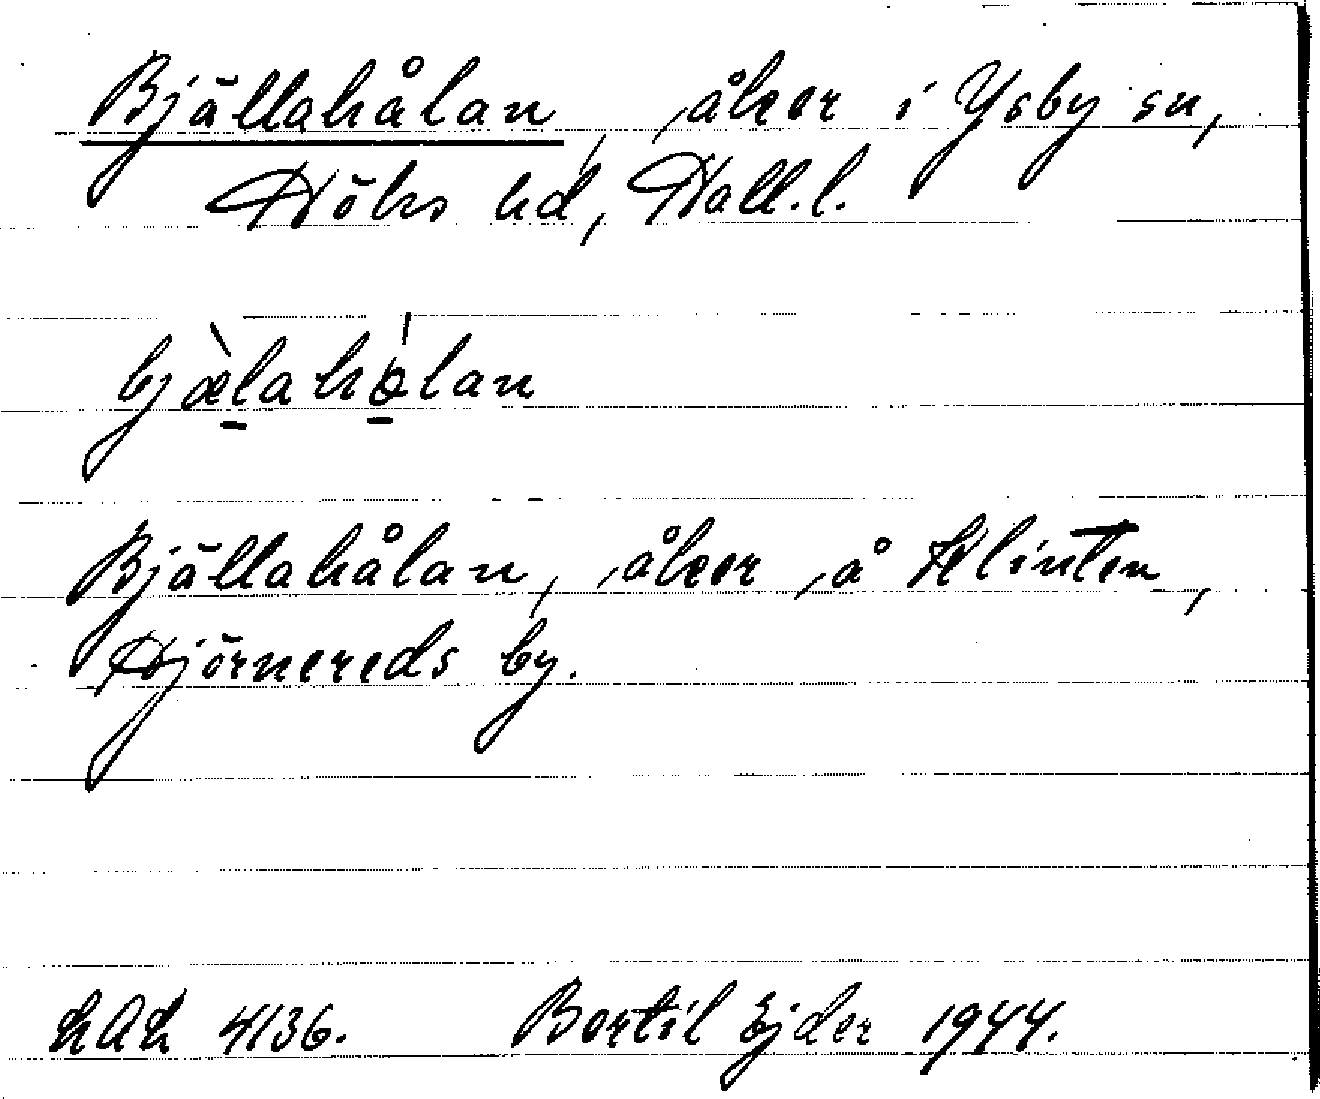 Bjällahålan, åker i Ysby sn,
Höks hd, Hall.l.
bjæ̀lahɷ́lan
Bjällahålan, åker å Klinten,
Hjörnereds by.
LAL 4136. Bertil Ejder 1944.